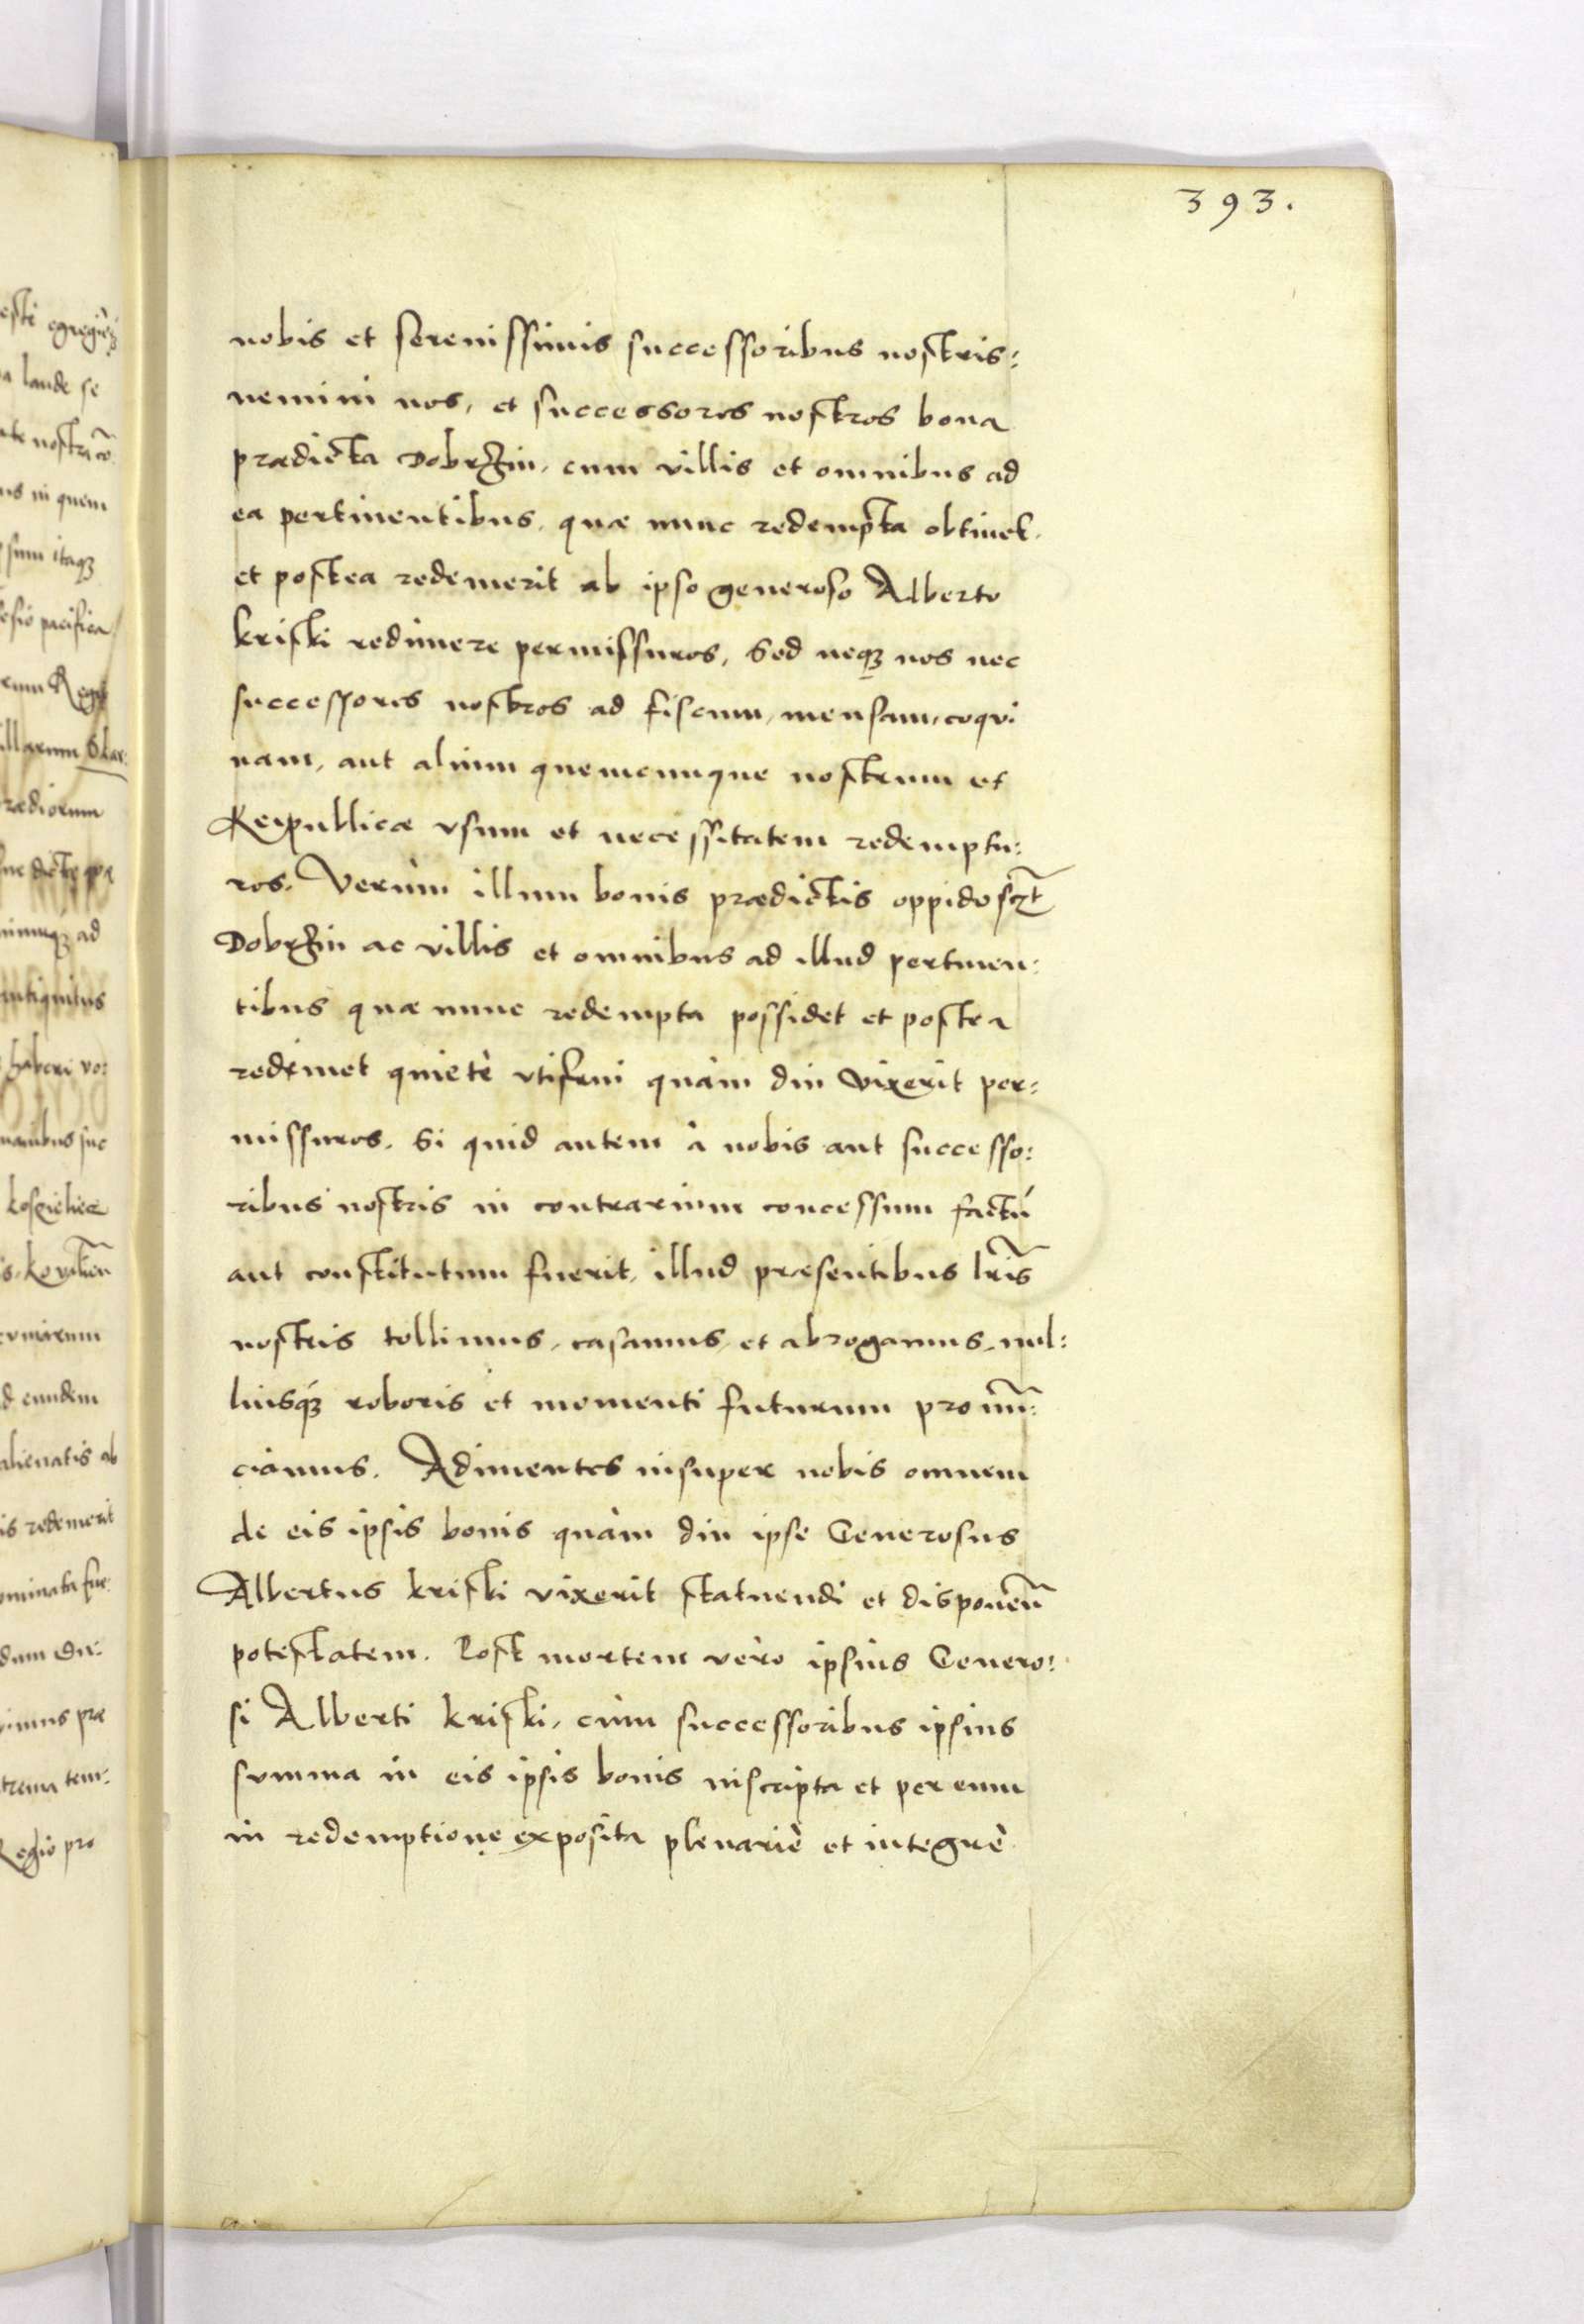 393.
nobis et serenissimis successoribus nostris:
nemini nos, et successores nostros bona
prædicta Dobrzin, cum villis et omnibus ad
ea pertinentibus, quæ nunc redempta obtinet,
et postea redemerit ab ipso generoso Alberto
kriski redimere permissuros, Sed neqꝫ nos nec
successores nostros ad fiscum, mensam, coqui
nam, aut alium quemcunque nostrum et
Reipublicæ vsum et necessitatem redemptu:
ros. Verùm illum bonis prædictis oppido sczt
Dobrzin ac villis et omnibus ad illud pertinen:
tibus quæ nunc redempta possidet et postea
redimet quietè vtifrui quàm diu vixerit per:
missuros. Si quid autem à nobis aut successo:
ribus nostris in contrarium concessum factū
aut constitutum fuerit, illud præsentibus lr̃is
nostris tollimus, casamus, et abrogamus, nul:
liusqꝫ roboris et momenti futurum pronun̄:
ciamus. Adimentes insuper nobis omnem
de eis ipsis bonis quàm diu ipse Generosus
Albertus kriski vixerit statuendi et disponen̄
potestatem. Post mortem vero ipsius Genero:
si Alberti kriski, cùm successoribus ipsius
summa in eis ipsis bonis inscripta et per eum
in redemptione exposita plenariè et integrè